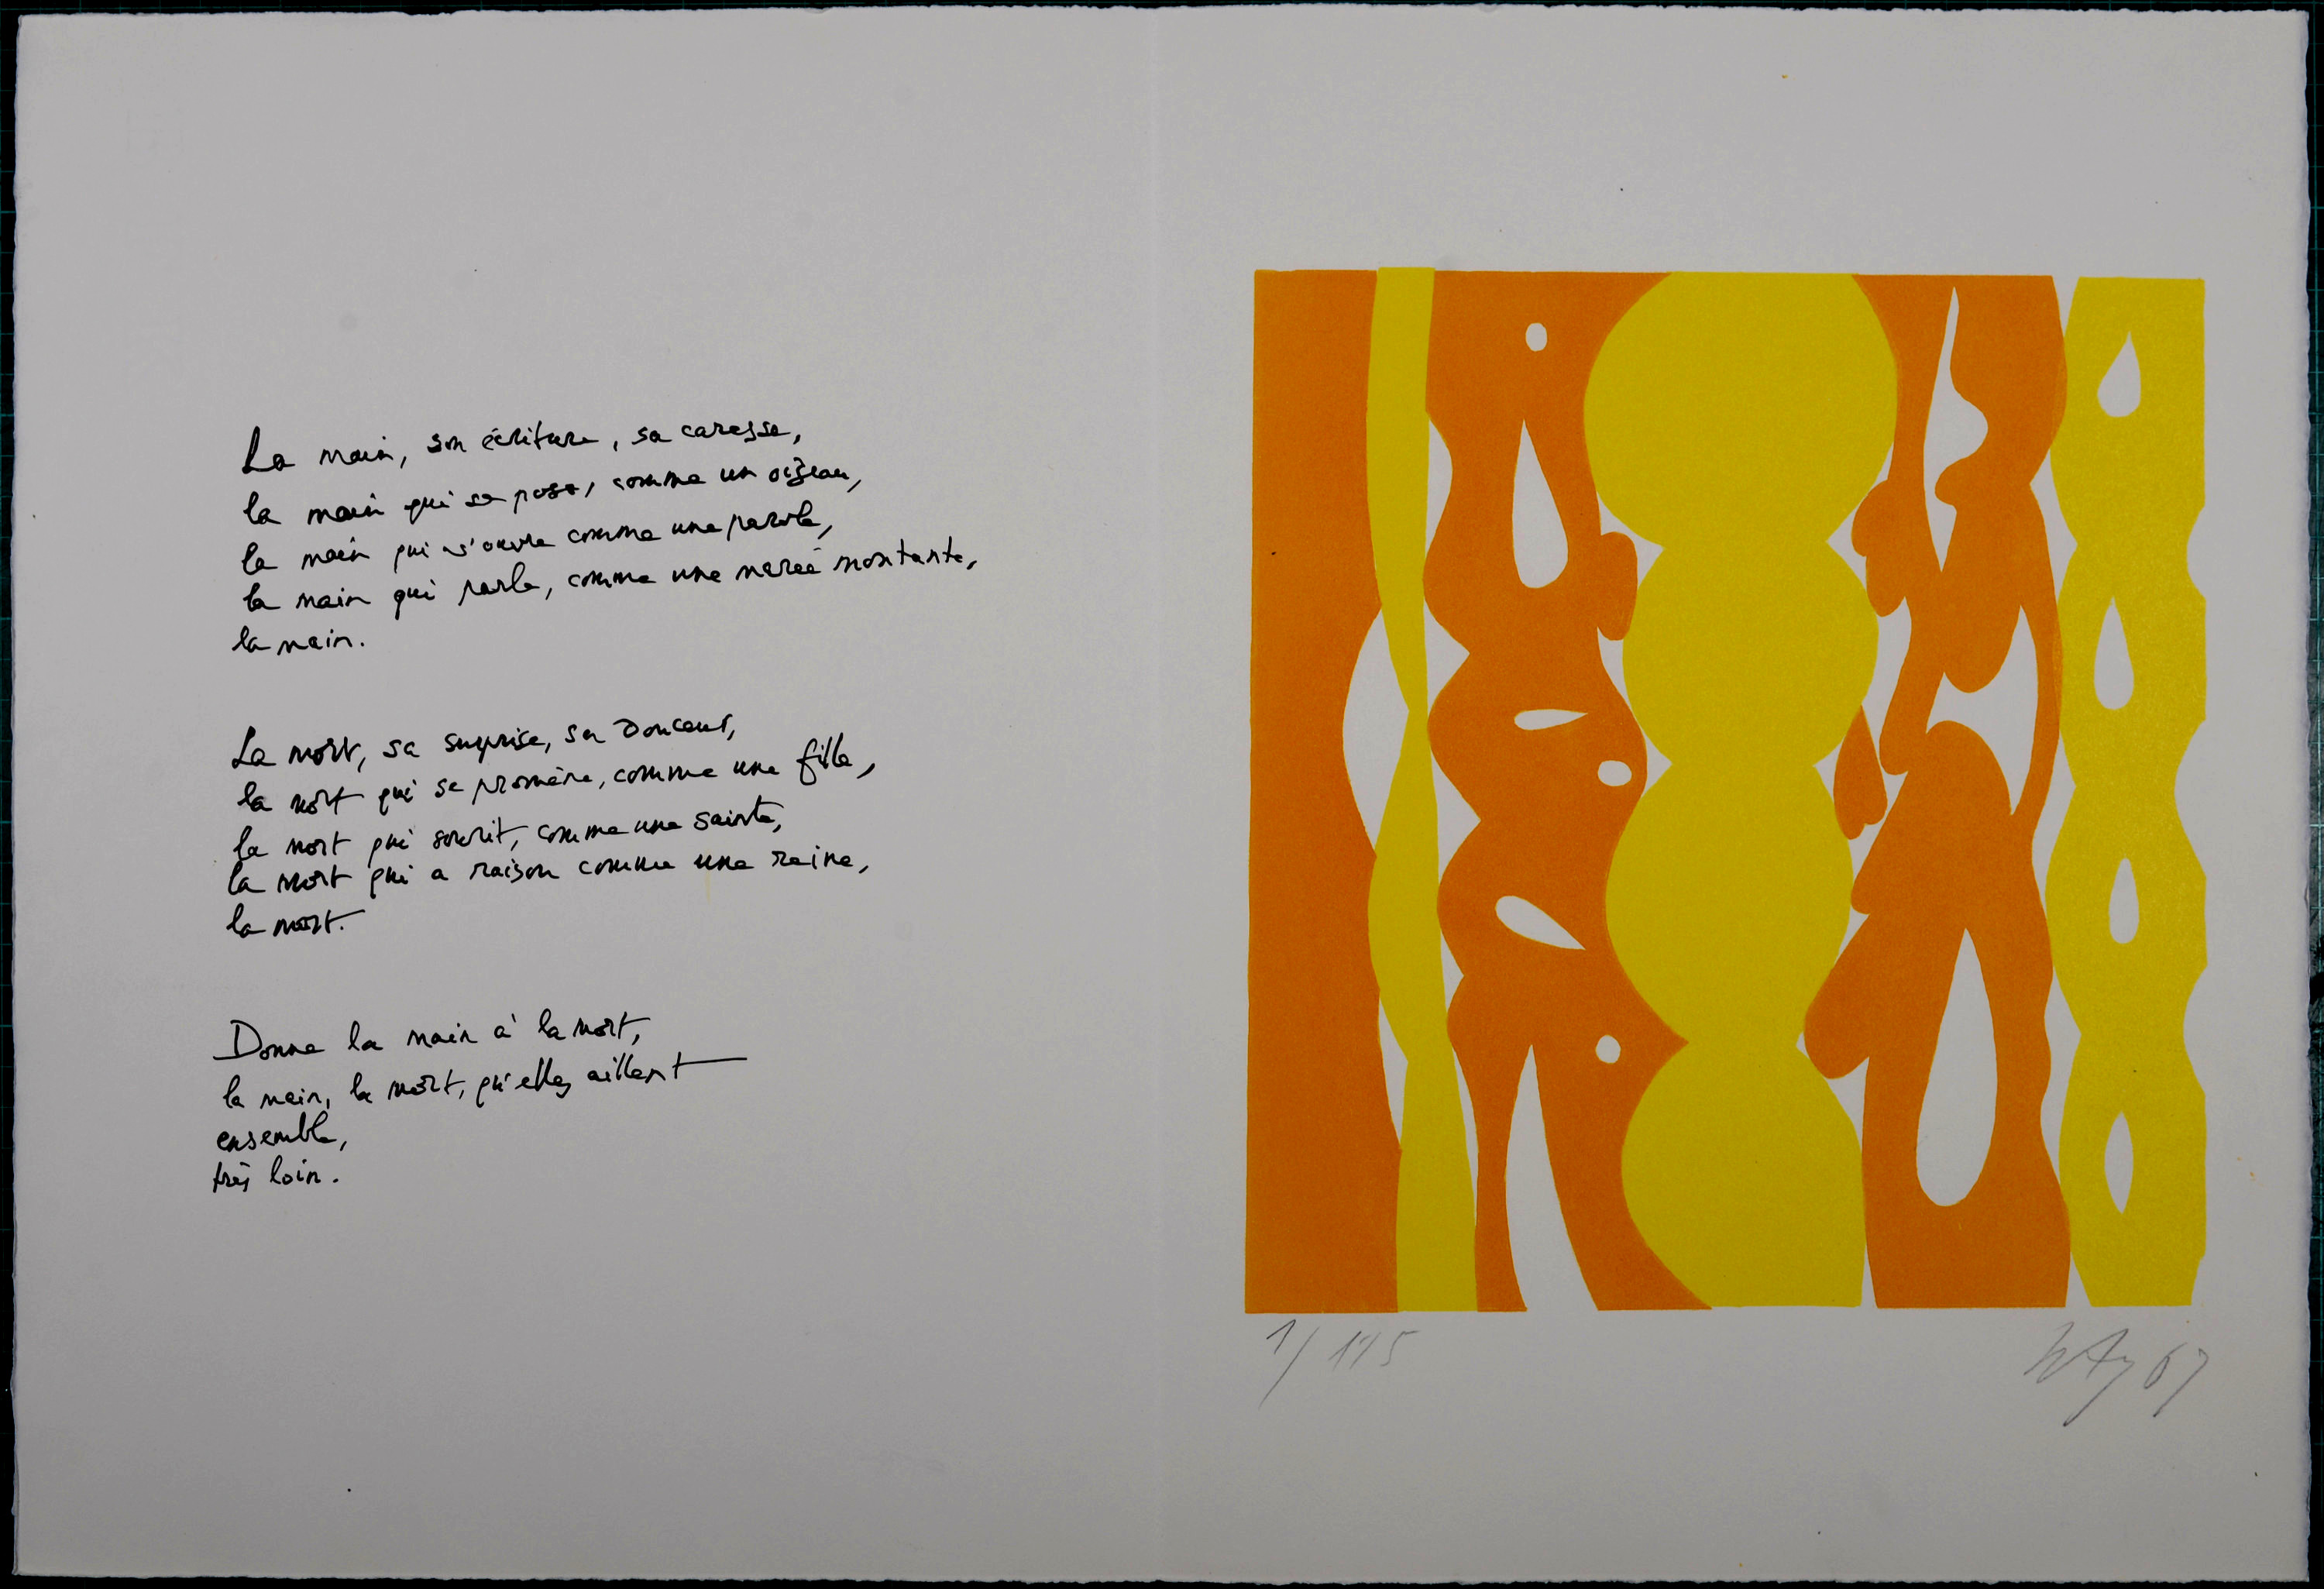 La main, son écriture, sa caresse,
la main qui se pose, comme un oiseau,
la main qui s'ouvre comme une parole,
la main qui parle, comme une marée montante,
la main.
La mort, sa surprise, sa douceur,
la mort qui se promène, comme une fille,
la mort qui sourit, comme une sainte,
la mort qui a raison comme une reine,
la mort.
Donne la main à la mort,
la main, la mort, qu'elles aillent
ensemble,
très loin.
1/175
67